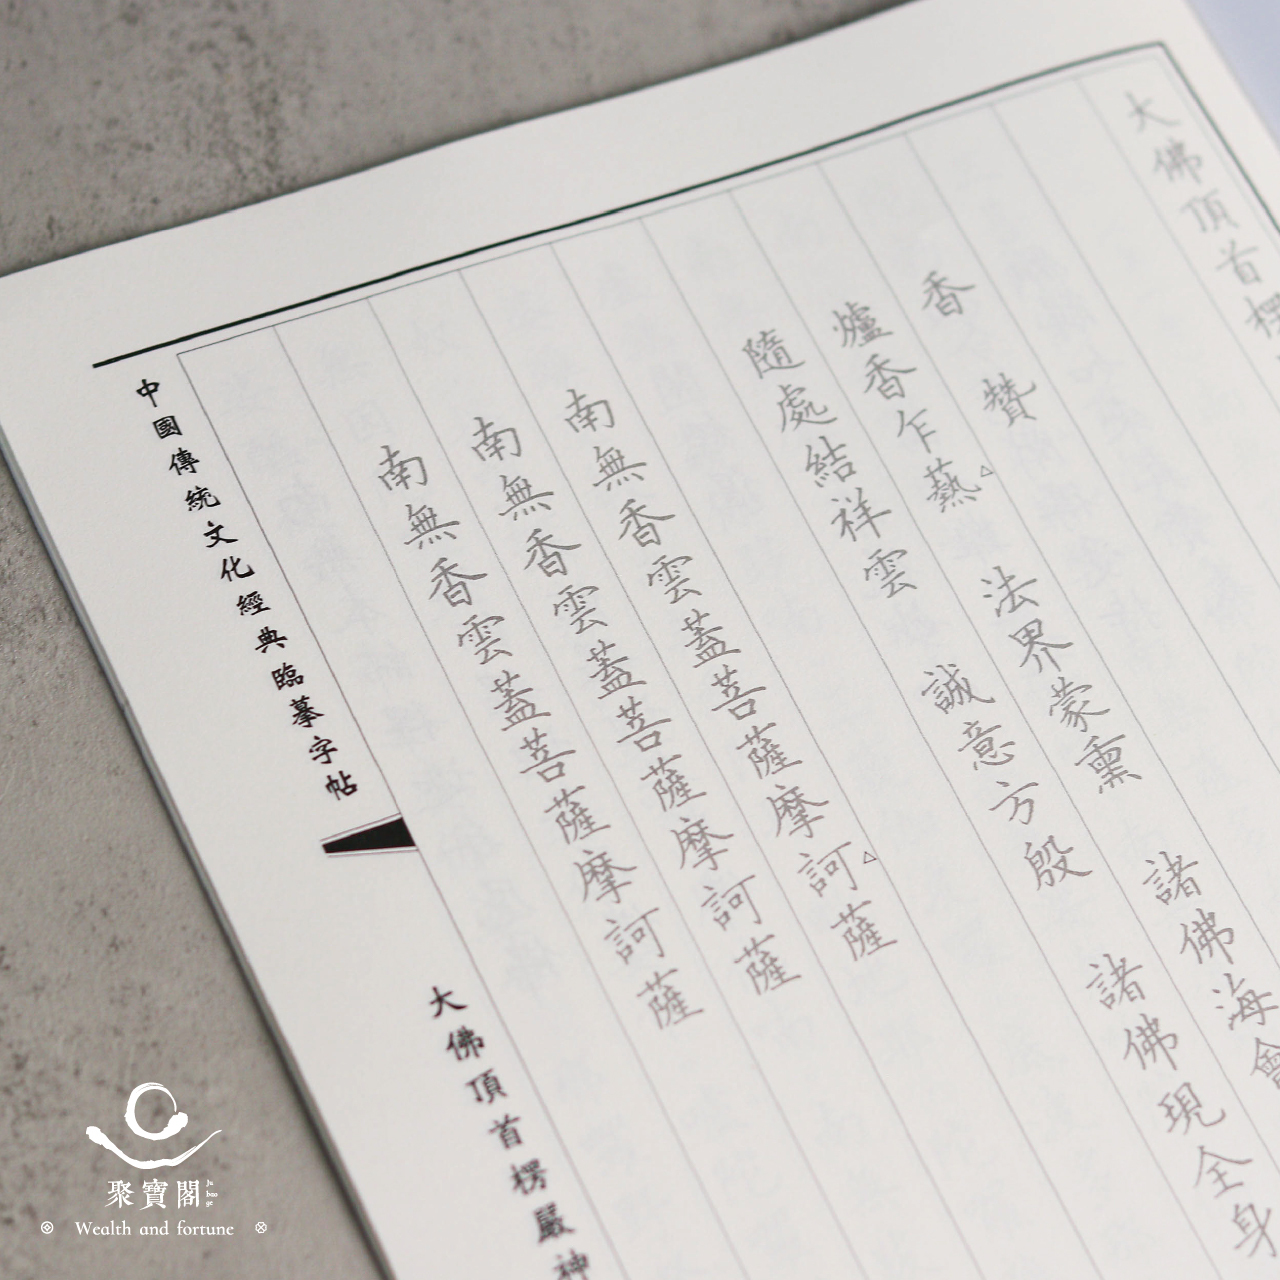 大佛頂首楞
香 贊
爐香乍爇 法界蒙熏 諸佛海會
隨處結祥雲 誠意方殷 諸佛現全身
南無香雲蓋菩薩摩訶薩
南無香雲蓋菩薩摩訶薩
南無香雲蓋菩薩摩訶薩
中國傳統文化經典臨摹字帖
大佛頂首楞嚴神
聚寶閣
Ju bao ge
Wealth and fortune